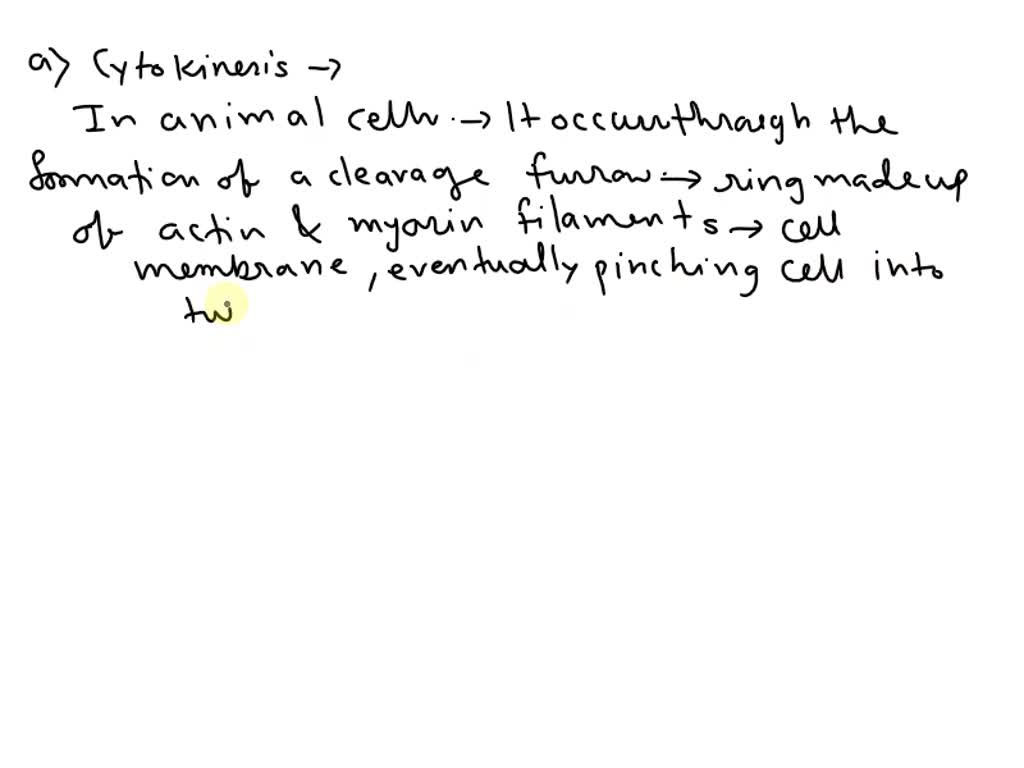 a) Cytokinesis →
In animal cells. → It occurs through the
formation of a cleavage furrow → ring made up
of actin & myosin filaments → cell
membrane, eventually pinching cell into
tw